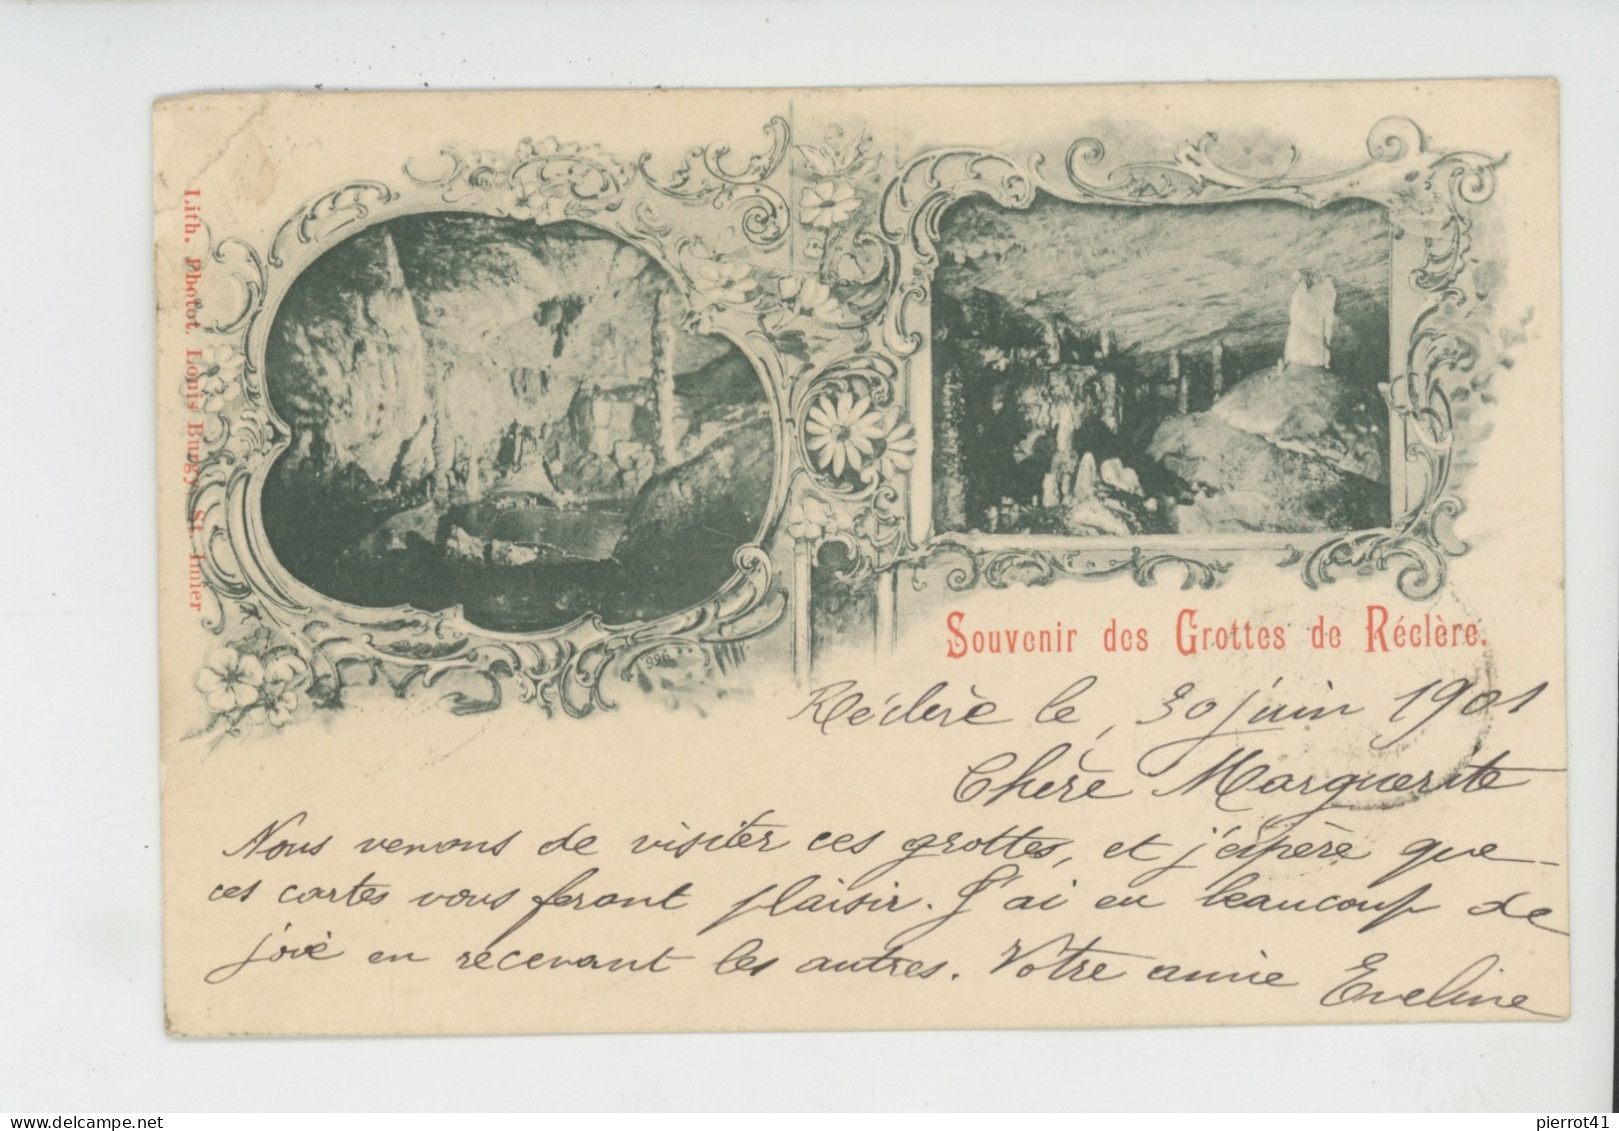 Lith. Photot. Louis Burgy, St. Imier
996
Souvenir des Grottes de Réclère.
Réclère le, 30 juin 1901
Chère Marguerite
Nous venons de visiter ces grottes, et j'éspère que
ces cartes vous feront plaisir. J'ai eu beaucoup de
joie en recevant les autres. Votre amie Eveline
pierrot41